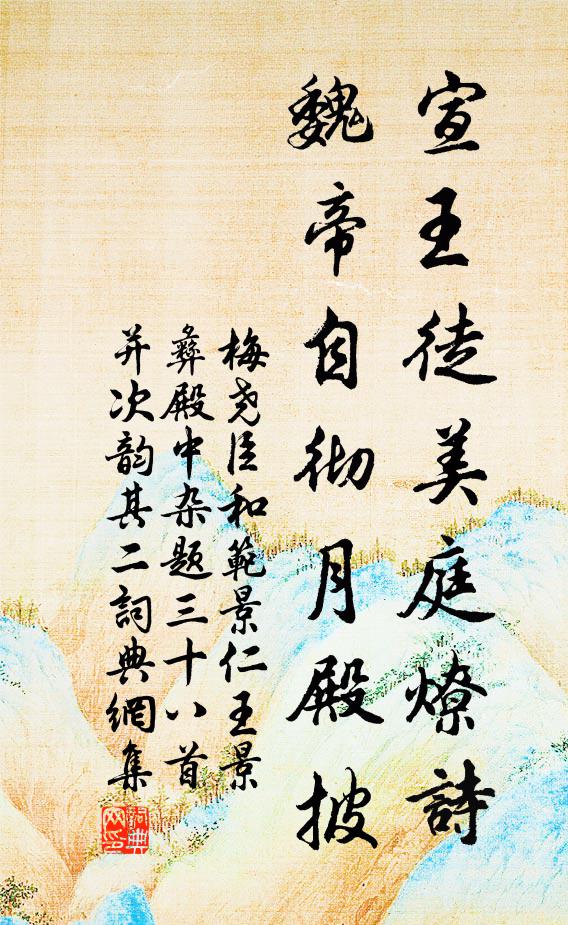 宣王徒美庭燎詩
魏帝自彻月殿披
梅尧臣和範景仁王景
彝殿中杂题三十八首
并次韵其二詞典網集
詞典
网印